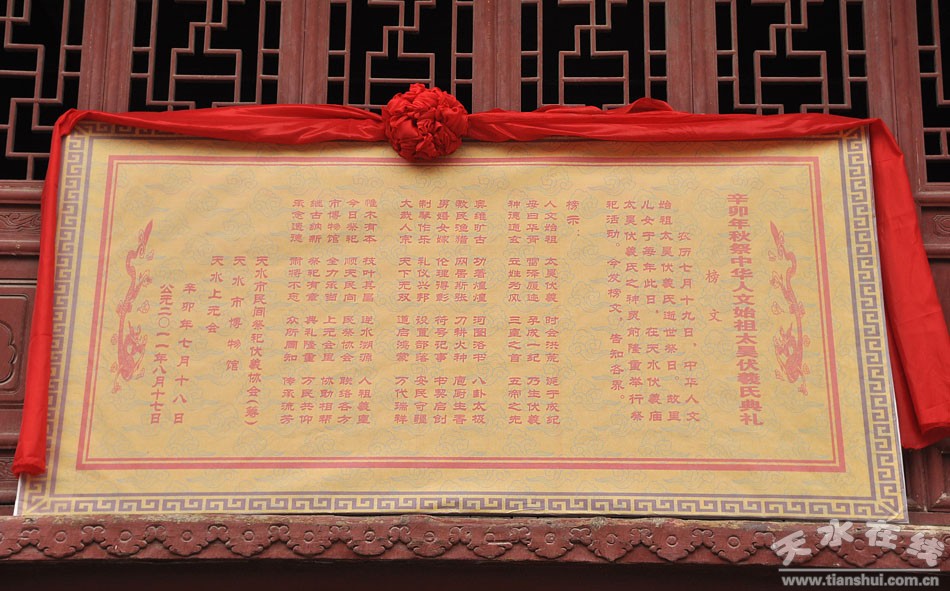 辛卯年秋祭中华人文始祖太昊伏羲氏典礼
榜文
农历七月十九日,中华人文
始祖太昊伏羲氏逝世祭日。故里
儿女于每年此日,在天水伏羲庙
太昊伏羲氏之神灵前隆重举行祭
祀活动。今发榜文,告知各界。
榜示:
人文始祖 太昊伏羲 时会洪荒 诞于成纪
母曰华胥 雷泽履迹 孕成一纪 乃生伏羲
神德通玄 立姓为风 三皇之首 五帝之先
奠维旷古 功着煌煌 河图洛书 八卦太极
教民渔猎 网罟斯张 刀耕火种 庖厨生香
男婚女嫁 伦理得彰 符号记事 书契启创
制琴作乐 礼仪兴邦 设置部落 安民守疆
大哉人宗 天下无双 道启鸿蒙 万代瑞祥
惟木有本 枝叶其昌 逆水溯源 人祖羲皇
今日祭祀 顺天民向 民祭协会 联络各方
市博物馆 全力承当 上元会里 协助相帮
继古纳新 祭祀有章 典礼隆重 万民共仰
承念遗德 肃将不忘 众所周知 传承流芳
天水市民间祭祀伏羲协会(筹)
天水市博物馆
天水上元会
辛卯年七月十八日
公元二〇一一年八月十七日
天水在线
www.tianshui.com.cn